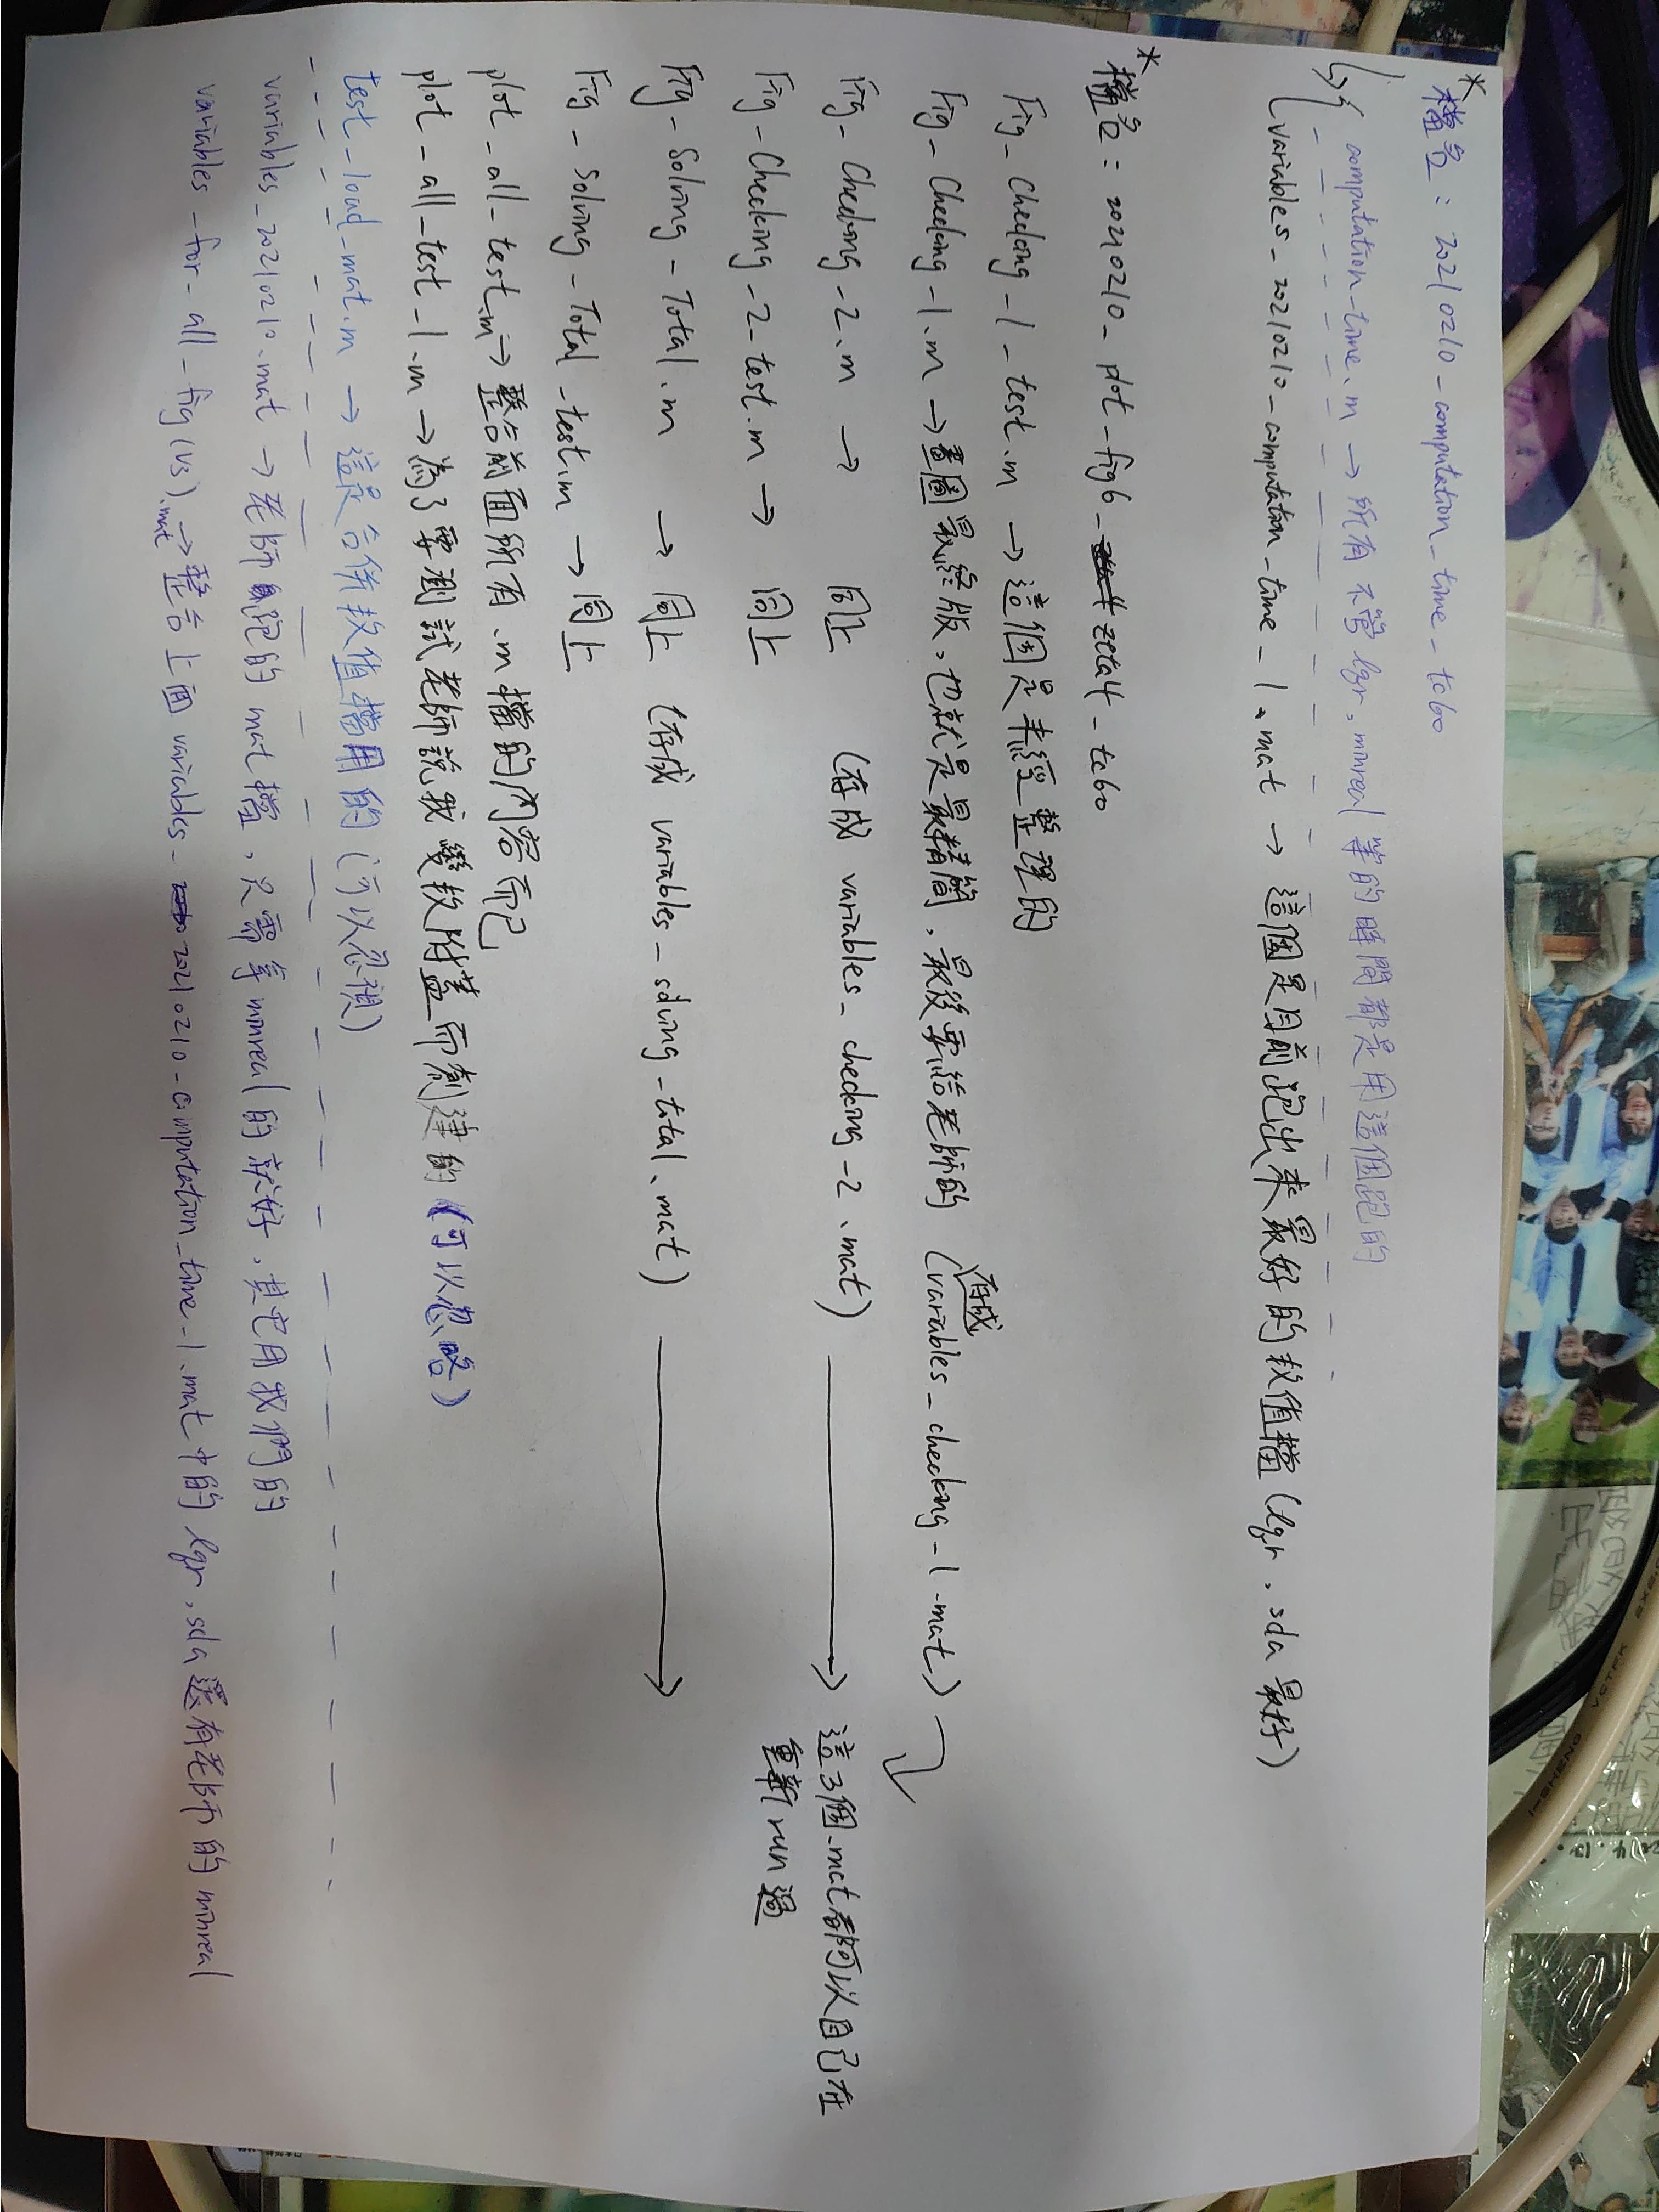 *
檔名：20210210_computation_time_tc60
computation_time.m → 所有不管lqr, minreal等的時間都是用這個跑的
variables_20210210_computation_time_1.mat → 這個是目前跑出來最好的数值檔(lqr, sda最好)
*
檔名：20210210_plot_fig6_zeta4_tc60
Fig_Checking_1_test.m → 這個是未經整理的
Fig_Checking_1.m → 畫圖最終版，也就是最精簡，最後要給老師的 (存成 variables_checking_1.mat)
Fig_Checking_2.m → 同上 (存成 variables_checking_2.mat) → 這3個.mat都可以自己在
重新run過
Fig_Checking_2_test.m → 同上
Fig_Solving_Total.m → 同上 (存成 variables_solving_total.mat) →
Fig_Solving_Total_test.m → 同上
plot_all_test.m → 整合前面所有.m檔的內容而已
plot_all_test_1.m → 為了要測試老師說我變数附蓋而創建的 (可以忽略)
test_load_mat.m → 這是合併数值檔用的 (可以忽視)
variables_20210210.mat → 老師跑的mat檔，只需拿minreal的就好，其它用我們的
variables_for_all_fig(v3).mat → 整合上面variables_20210210_computation_time_1.mat中的lqr, sda還有老師的minreal